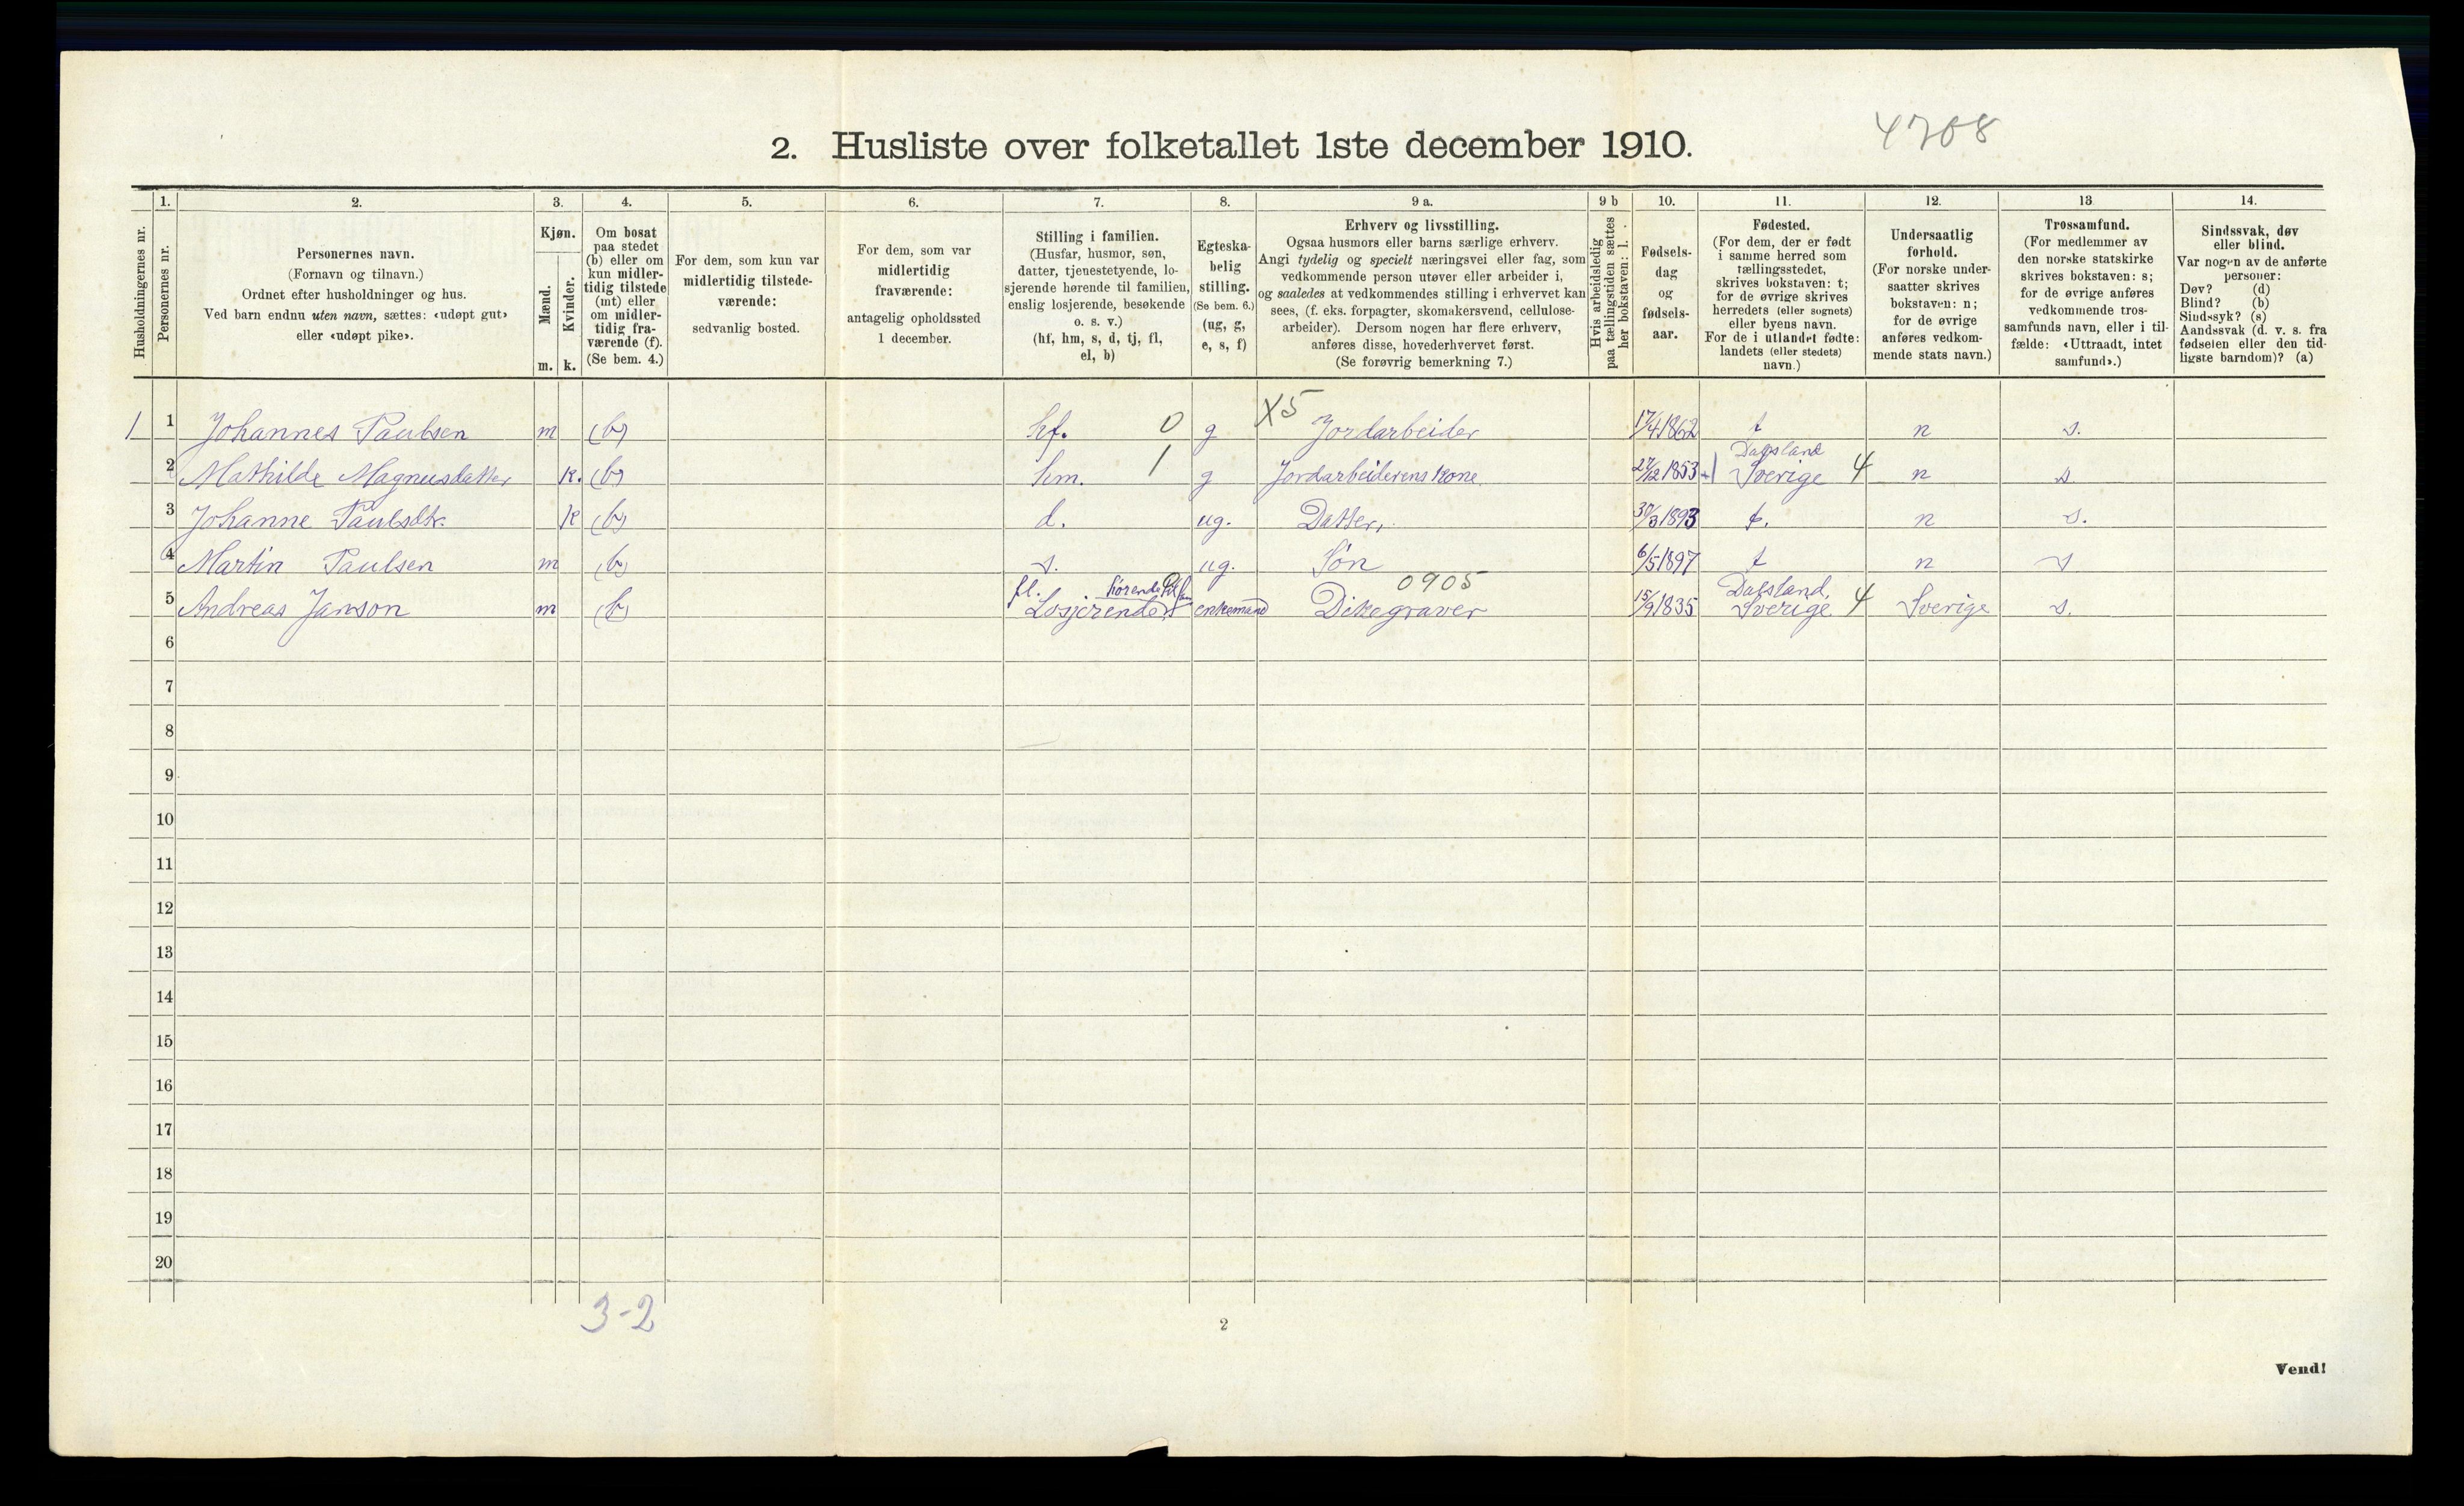 4708
2. Husliste over folketallet 1ste december 1910.
Husholdningernes nr.
1.
Personernes nr.
2.
Personernes navn.
(Fornavn og tilnavn.)
Ordnet efter husholdninger og hus.
Ved barn endnu uten navn, sættes: «udøpt gut»
eller «udøpt pike».
3.
Kjøn.
Mænd.
Kvinder.
m. k.
4.
Om bosat
paa stedet
(b) eller om
kun midler-
tidig tilstede
(mt) eller
om midler-
tidig fra-
værende (f).
(Se bem. 4.)
5.
For dem, som kun var
midlertidig tilstede-
værende:
sedvanlig bosted.
6.
For dem, som var
midlertidig
fraværende:
antagelig opholdssted
1 december.
7.
Stilling i familien.
(Husfar, husmor, søn,
datter, tjenestetyende, lo-
sjerende hørende til familien,
enslig losjerende, besøkende
o. s. v.)
(hf, hm, s, d, tj, fl,
el, b)
8.
Egteska-
belig
stilling.
(Se bem. 6.)
(ug, g,
e, s, f)
9 a.
Erhverv og livsstilling.
Ogsaa husmors eller barns særlige erhverv.
Angi tydelig og specielt næringsvei eller fag, som
vedkommende person utøver eller arbeider i,
og saaledes at vedkommendes stilling i erhvervet kan
sees, (f. eks. forpagter, skomakersvend, cellulose-
arbeider). Dersom nogen har flere erhverv,
anføres disse, hovederhvervet først.
(Se forøvrig bemerkning 7.)
9 b
Hvis arbeidsledig
paa tællingstiden sættes
her bokstaven: l.
10.
Fødsels-
dag
og
fødsels-
aar.
11.
Fødested.
(For dem, der er født
i samme herred som
tællingsstedet,
skrives bokstaven: t;
for de øvrige skrives
herredets (eller sognets)
eller byens navn.
For de i utlandet fødte:
landets (eller stedets)
navn.)
12.
Undersaatlig
forhold.
(For norske under-
saatter skrives
bokstaven: n;
for de øvrige
anføres vedkom-
mende stats navn.)
13
Trossamfund.
(For medlemmer av
den norske statskirke
skrives bokstaven: s;
for de øvrige anføres
vedkommende tros-
samfunds navn, eller i til-
fælde: «Uttraadt, intet
samfund».)
14.
Sindssvak, døv
eller blind.
Var nogen av de anførte
personer:
Døv? (d)
Blind? (b)
Sindssyk? (s)
Aandssvak (d. v. s. fra
fødselen eller den tid-
ligste barndom)? (a)
X5
1 1 Johannes Paulsen m (b) hf. 0 g Jordarbeider 17/4 1862 t n s.
Dalsland
2 Mathilde Magnusdatter k. (b) hm. 1 g Jordarbeiderens kone 27/12 1853 Sverige 4 n s
3 Johanne Paulsdtr. k (b) d. ug. Datter, 30/3 1893 t. n s.
4 Martin Paulsen m (b) s. ug. Søn 6/5 1897 t n s
fl. hørende til fam 0905 Dalsland,
5 Andreas Janson m (b) Losjerende enkemand Dikegraver 15/9 1835 Sverige. 4 Sverige s.
6
7
8
9
10
11
12
13
14
15
16
17
18
19
20
3-2
2
Vend!